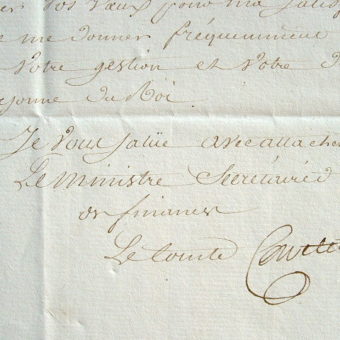 vos vœux pour ma satis
me donner fréquemment
votre gestion et votre d
sonne du Roi.
Je vous salüe avec attache
Le Ministre Secrétaire d
des finances
Le Comte Corvetto